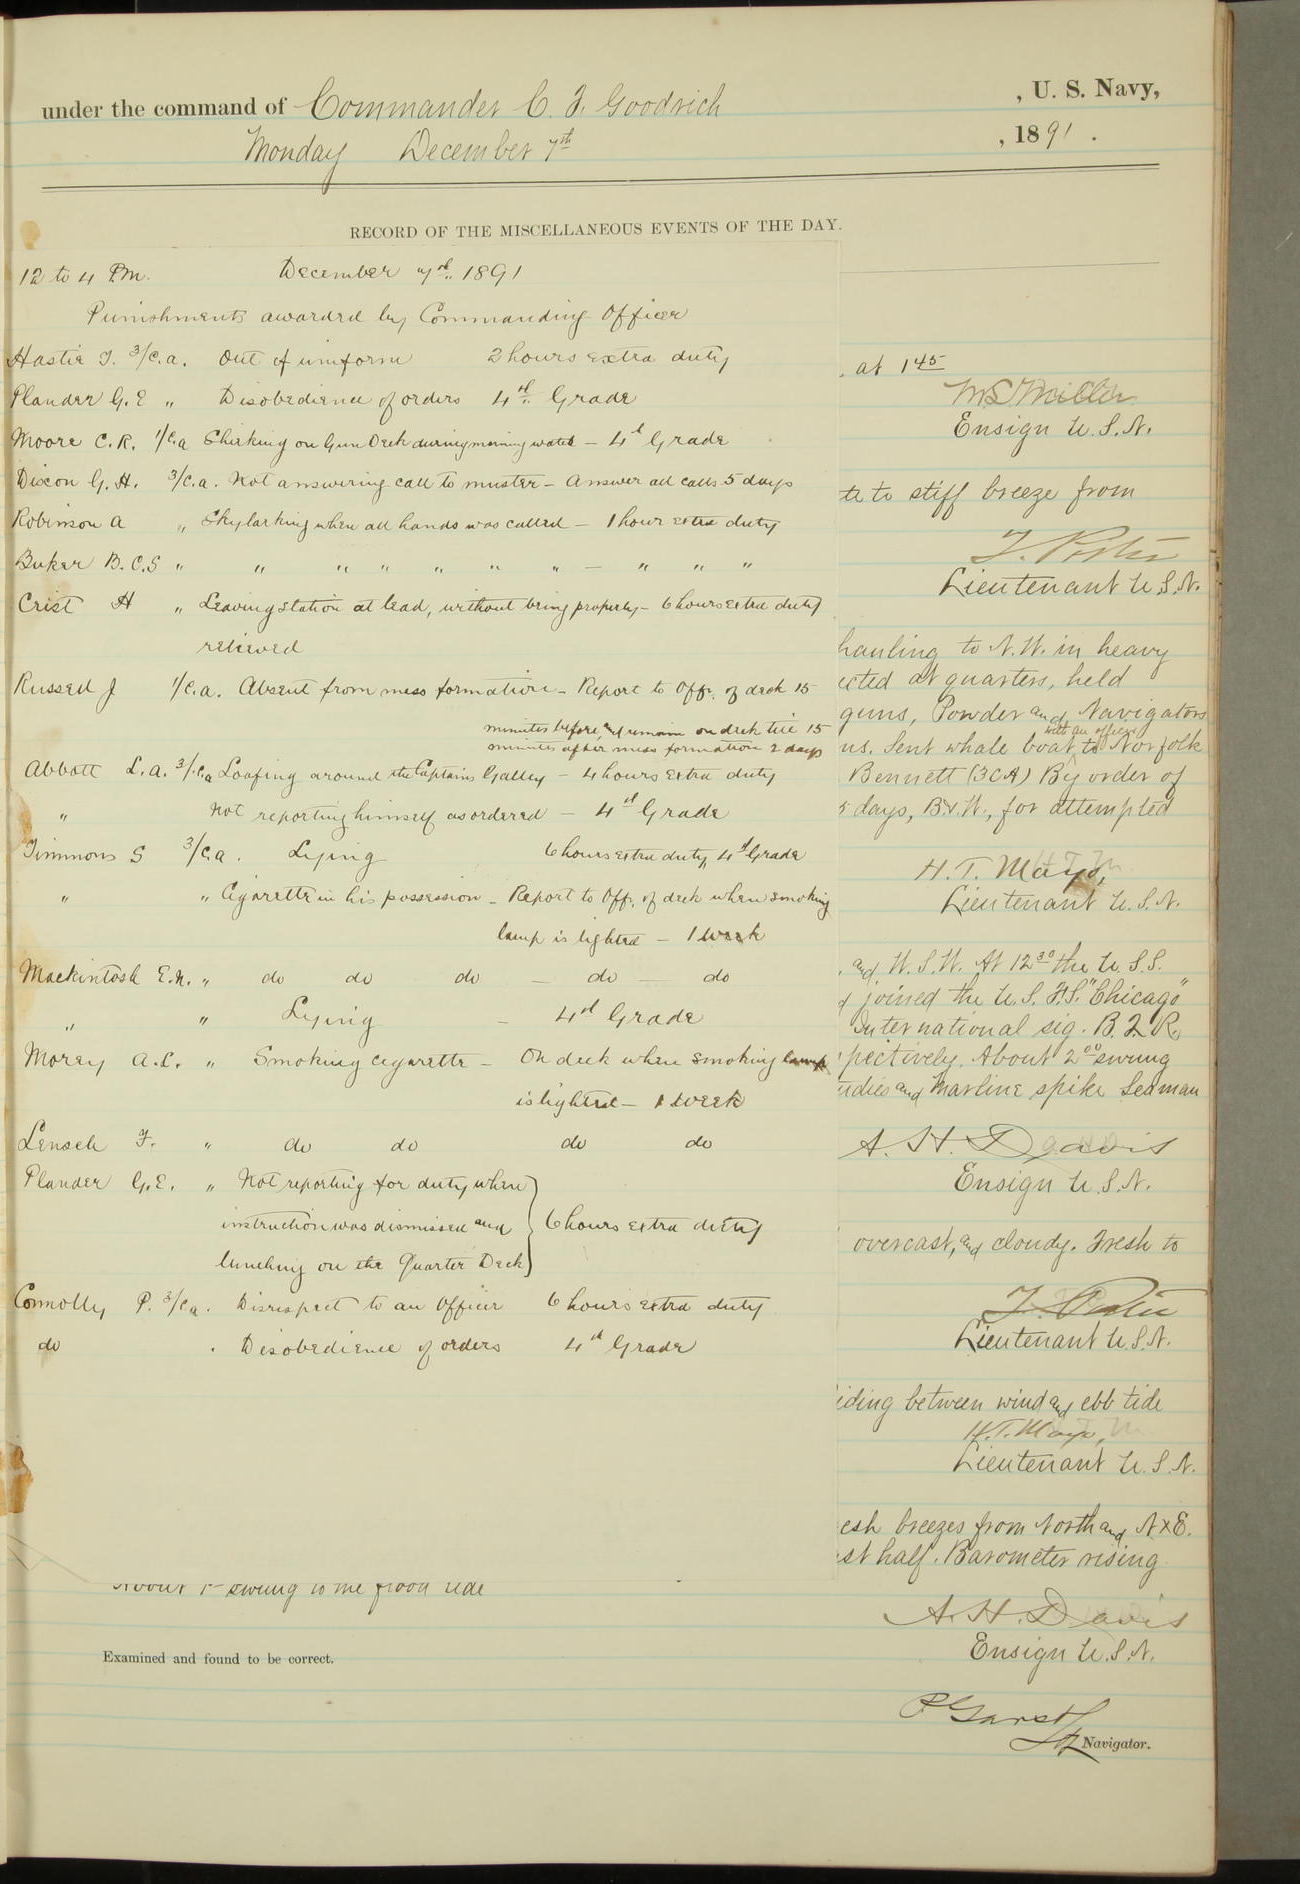 under the command of Commander C. F. Goodrich, U. S. Navy,
Monday December 7th, 1891.
RECORD OF THE MISCELLANEOUS EVENTS OF THE DAY.
12 to 4 P.M. December 7th 1891
Punishments awarded by Commanding Officer
Hastie T. 3/c.a. Out of uniform 2 hours extra duty
Plander G.E " Disobedience of orders 4th Grade
Moore C.R. 1/c.a Shirking on Gun Deck during morning watch - 4th Grade
Dixon G.H. 3/c.a. Not answering call to muster - Answer all calls 5 days
Robinson A " Skylarking when all hands was called - 1 hour extra duty
Buker B.C.S " " " " " " " - " " "
Crist H " Leaving station at lead, without being properly - 6 hours extra duty
relieved
Russell J 1/c.a. Absent from mess formation - Report to Off. of deck 15
minutes before, and remain on deck till 15
minutes after mess formation 2 days
Abbott L.A. 3/c.a Loafing around the Captains Galley - 4 hours extra duty
" Not reporting himself as ordered - 4th Grade
Timmons S 3/c.a. Lying 6 hours extra duty, 4th Grade
" " Cigarette in his possession - Report to Off. of deck when smoking
lamp is lighted - 1 week
Mackintosh E.N. " do do do - do - do
" " Lying - 4th Grade
Morey A.L. " Smoking cigarette - On deck when smoking lamp
is lighted - 1 week
Lensch F. " do do do do
Plander G.E. " Not reporting for duty when
instruction was dismissed and 6 hours extra duty
lunching on the Quarter Deck
Connolly P. 3/c.a. Disrespect to an Officer 6 hours extra duty
do . Disobedience of orders 4th Grade
. at 1 45
M S Miller
Ensign U.S.N.
te to stiff breeze from
Lieutenant U.S.N.
hauling to N.W. in heavy
ected at quarters, held
guns, Powder and Navigators
with an officer
ns. Sent whale boat to Norfolk
Bennett (3CA) By order of
5 days, B.&W., for attempted
H. T. Mayo,
Lieutenant U.S.N.
, and W.S.W. At 12 30 the U.S.S.
d joined the U.S.F.S. "Chicago"
International sig. B.L.R.
pectively. About 2 00 swung
udies and Marline spike Seaman
A. H. Davis
Ensign U.S.N.
overcast, and cloudy. Fresh to
Lieutenant U.S.N.
iding between wind and ebb tide
H.T. Mayo,
Lieutenant U.S.N.
esh breezes from North and NxE.
st half. Barometer rising
About 1- swung to the flood tide
A. H. Davis
Ensign U.S.N.
Examined and found to be correct.
P Garst
Navigator.